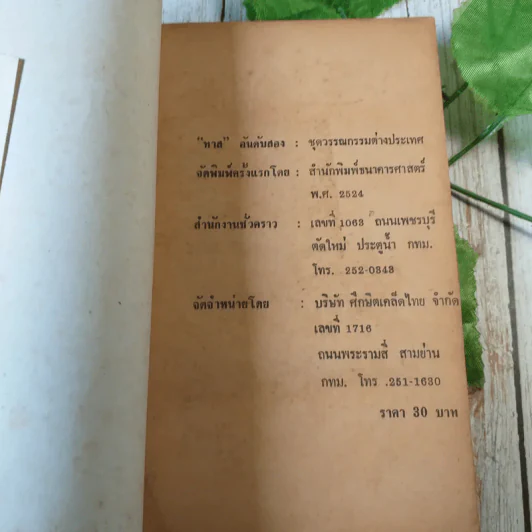 "ทาส" อันดับสอง : ชุดวรรณกรรมต่างประเทศ
จัดพิมพ์ครั้งแรกโดย : สำนักพิมพ์ธนาคารศาสตร์
พ.ศ. 2524
สำนักงานชั่วคราว : เลขที่ 1063 ถนนเพชรบุรี
ตัดใหม่ ประตูน้ำ กทม.
โทร. 252-0343
จัดจำหน่ายโดย : บริษัท ศึกษิตเคล็ดไทย จำกัด
เลขที่ 1716
ถนนพระรามสี่ สามย่าน
กทม. โทร .251-1630
ราคา 30 บาท